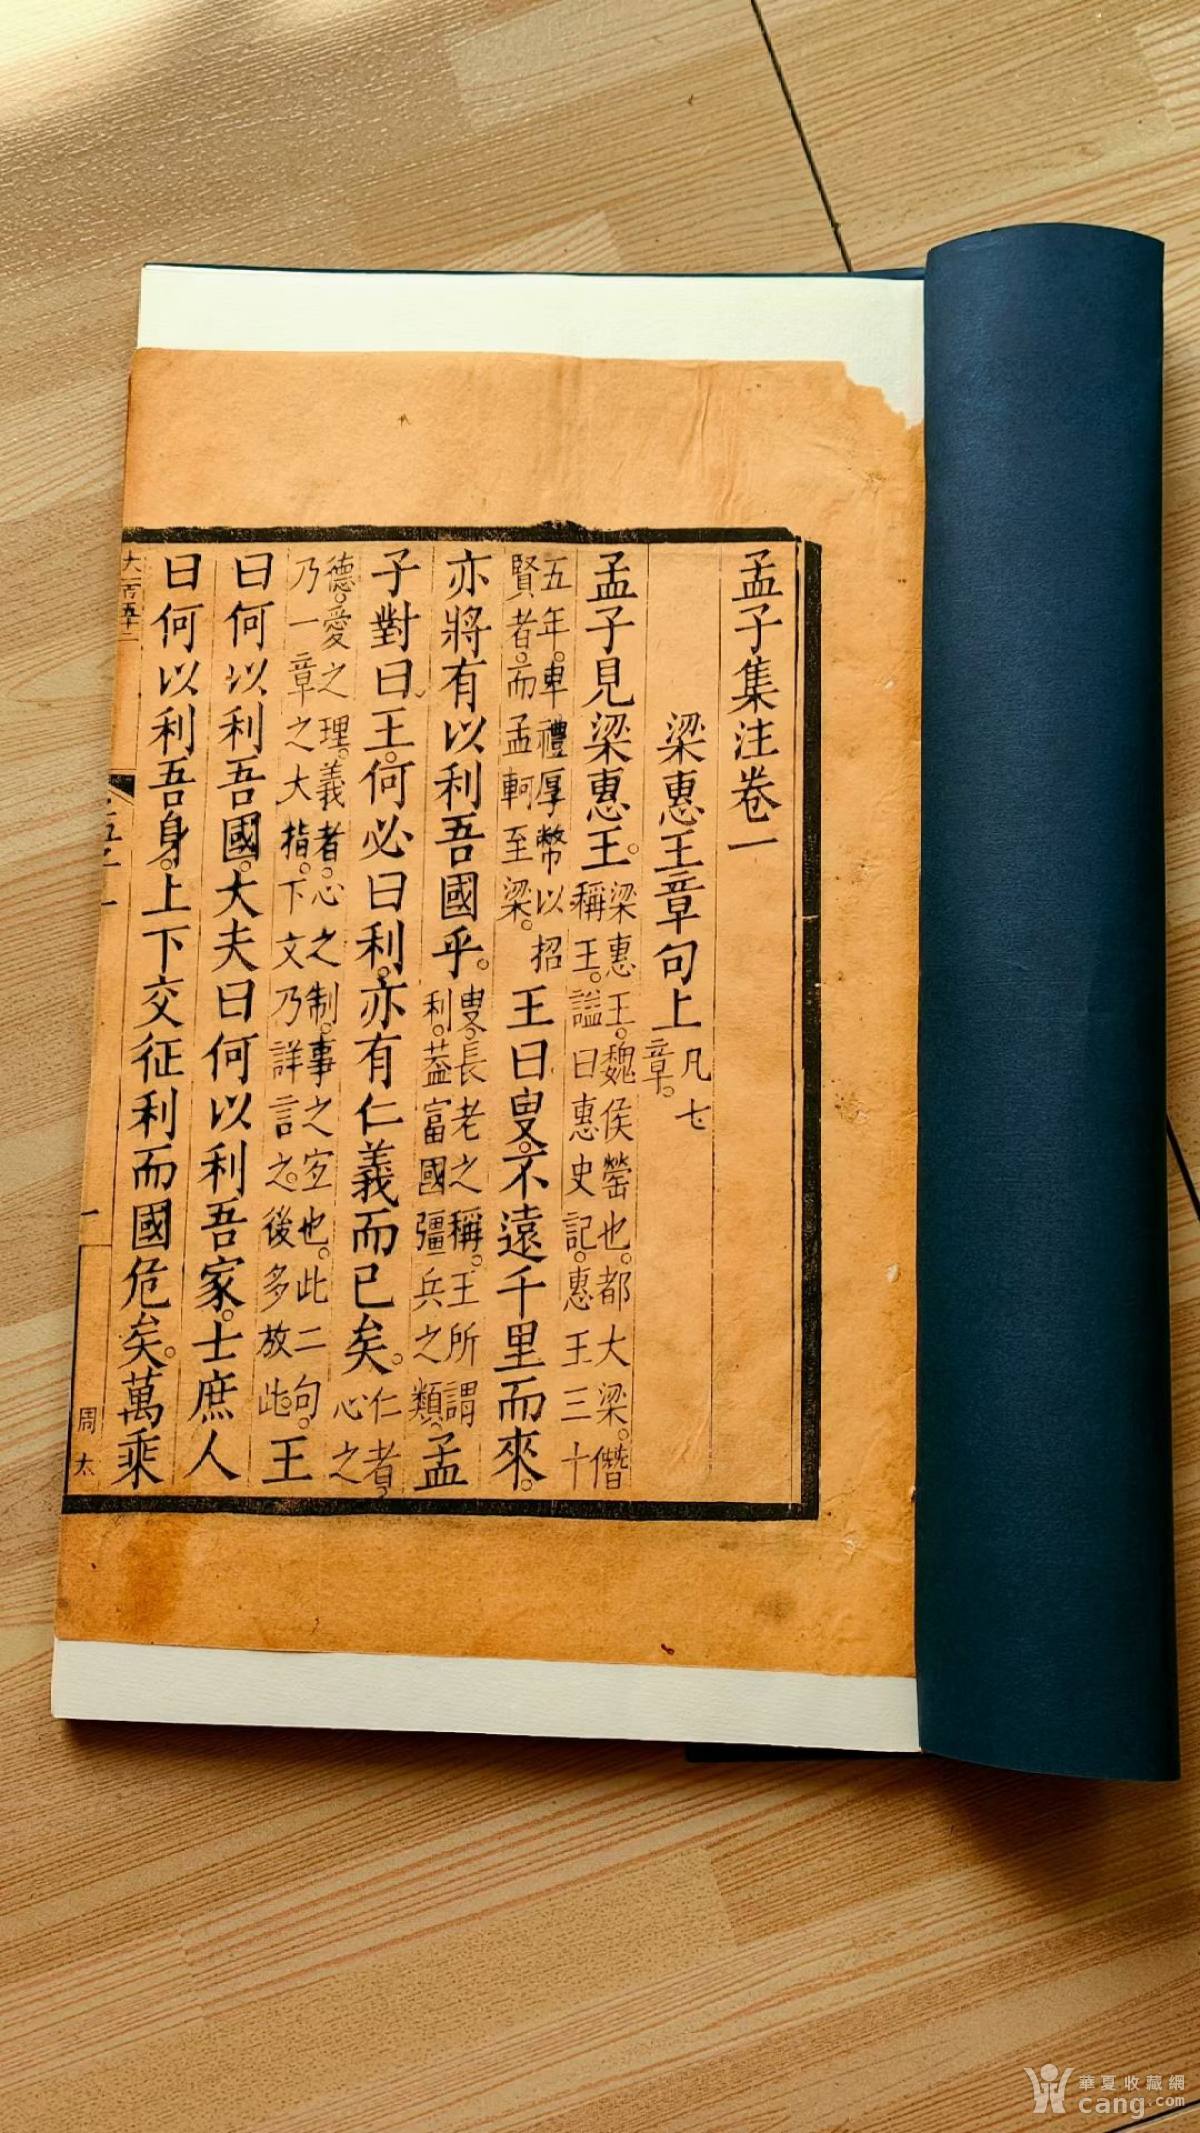 孟子集注卷一
梁惠王章句上
凡七
章。
孟子見梁惠王。
梁惠王。魏侯罃也。都大梁。僭
稱王。謚曰惠史記。惠王三十
五年。卑禮厚幣以招
賢者。而孟軻至梁。
王曰叟。不遠千里而來。
亦將有以利吾國乎。
叟。長老之稱。王所謂
利。葢富國彊兵之類。
孟
子對曰王。何必曰利。亦有仁義而已矣。
仁者。
心之
德。愛之理。義者。心之制。事之宜也。此二句。
乃一章之大指。下文乃詳言之。後多放此。
王
曰何以利吾國。大夫曰何以利吾家。士庶人
曰何以利吾身。上下交征利而國危矣。萬乘
一
周太
華夏收藏網
cang.com